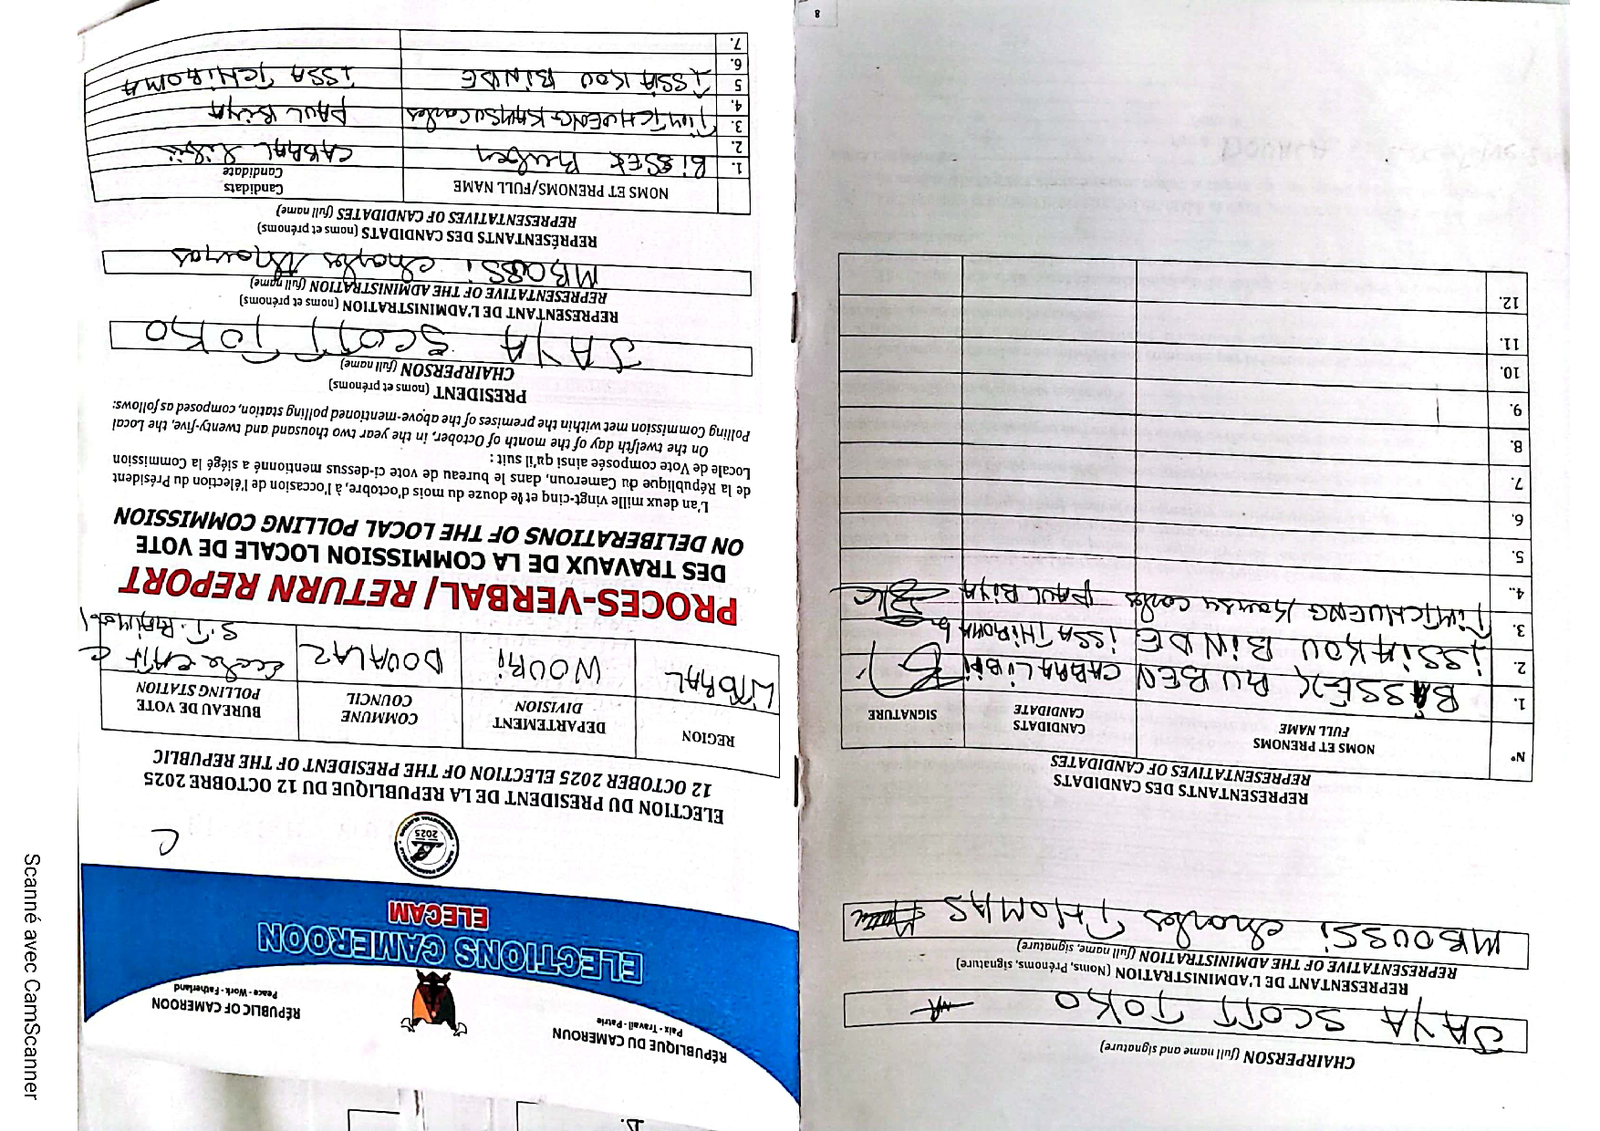 RÉPUBLIQUE DU CAMEROUN
Paix - Travail - Patrie
RÉPUBLIC OF CAMEROON
Peace - Work - Fatherland
ELECTIONS CAMEROON
ELECAM
2025
C
ELECTION DU PRESIDENT DE LA REPUBLIQUE DU 12 OCTOBRE 2025
12 OCTOBER 2025 ELECTION OF THE PRESIDENT OF THE REPUBLIC
REGION
DEPARTEMENT
DIVISION
COMMUNE
COUNCIL
BUREAU DE VOTE
POLLING STATION
LITTORAL
WOURI
DOUALA2
S.T.
PROCES-VERBAL / RETURN REPORT
DES TRAVAUX DE LA COMMISSION LOCALE DE VOTE
ON DELIBERATIONS OF THE LOCAL POLLING COMMISSION
L'an deux mille vingt-cinq et le douze du mois d'octobre, à l'occasion de l'élection du Président
de la République du Cameroun, dans le bureau de vote ci-dessus mentionné a siégé la Commission
Locale de Vote composée ainsi qu'il suit :
On the twelfth day of the month of October, in the year two thousand and twenty-five, the Local
Polling Commission met within the premises of the above-mentioned polling station, composed as follows:
PRESIDENT (noms et prénoms)
CHAIRPERSON (full name)
JAYA SCOTT TOKO
REPRESENTANT DE L'ADMINISTRATION (noms et prénoms)
REPRESENTATIVE OF THE ADMINISTRATION (full name)
MBOUSSI Charles Thomas
REPRÉSENTANTS DES CANDIDATS (noms et prénoms)
REPRESENTATIVES OF CANDIDATES (full name)
NOMS ET PRENOMS/FULL NAME
Candidats
Candidate
1. BISSEK Ruben CABRAL Libii
2.
3. TIMTCHUENG KAMSU Carles PAUL BIYA
4.
5 ISSIAKOU BINDE ISSA TCHIROMA
6.
7.
CHAIRPERSON (full name and signature)
JAYA SCOTT TOKO
REPRESENTANT DE L'ADMINISTRATION (Noms, Prénoms, signature)
REPRESENTATIVE OF THE ADMINISTRATION (full name, signature)
MBOUSSI Charles THOMAS
REPRESENTANTS DES CANDIDATS
REPRESENTATIVES OF CANDIDATES
N°
NOMS ET PRENOMS
FULL NAME
CANDIDATS
CANDIDATE
SIGNATURE
1. BISSEK RUBEN CABRAL LIBII
2. ISSIAKOU BINDE ISSA THIROMA
3. TIMTCHUENG Kamsu Carles PAUL BIYA
4.
5.
6.
7.
8.
9.
10.
11.
12.
8
Scanné avec CamScanner